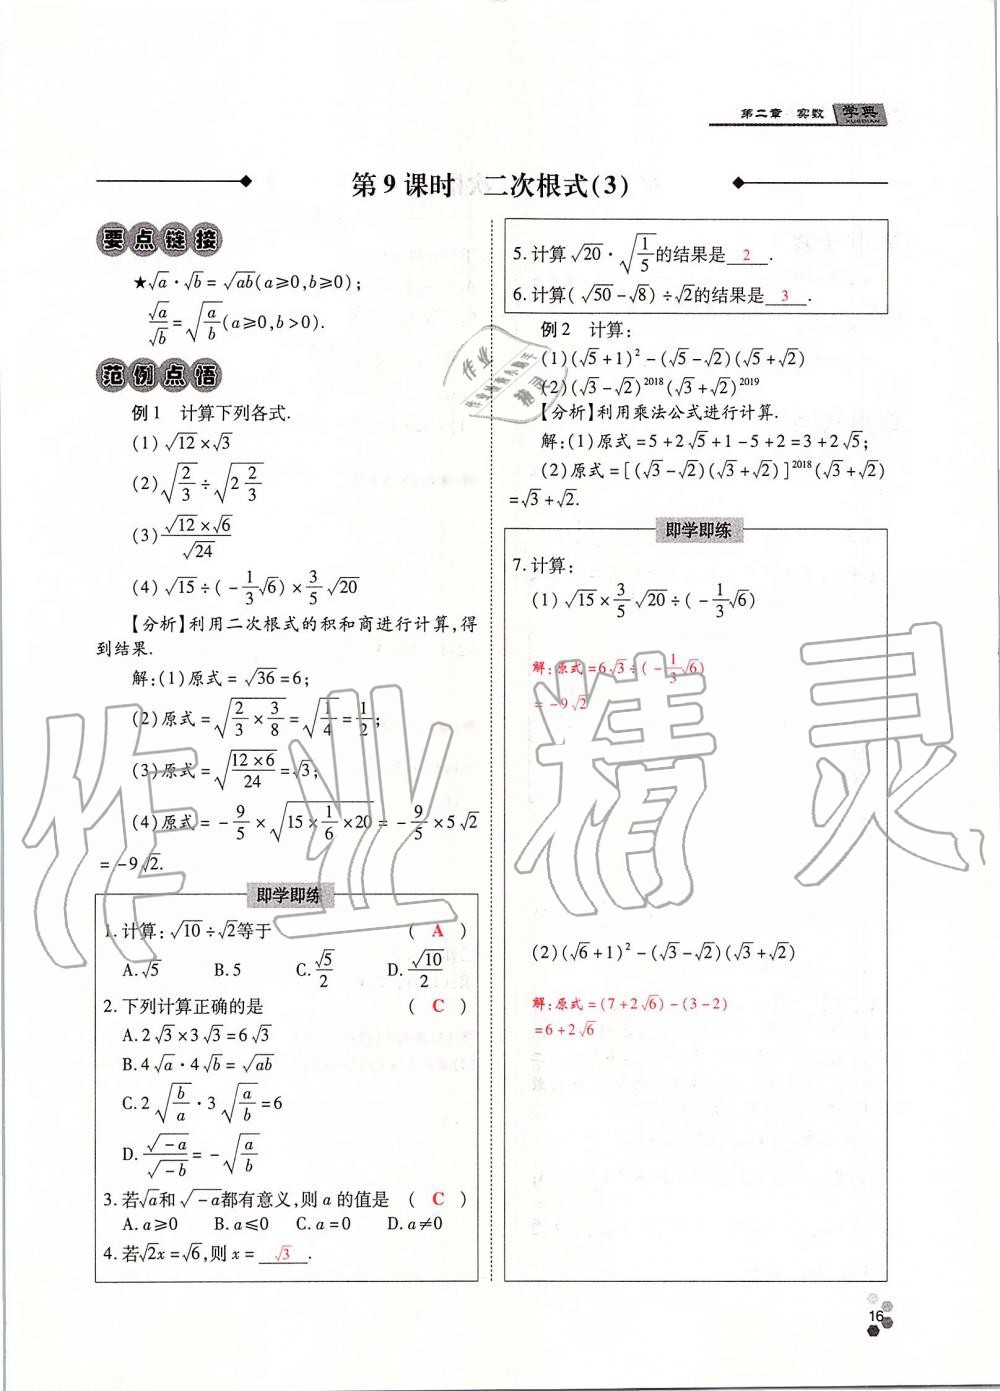 第二章 实数 学典
XUEDIAN
第9课时 二次根式(3)
要点链接
★√a·√b=√(ab)(a≥0,b≥0);
√a/√b=√(a/b)(a≥0,b>0).
范例点悟
例1 计算下列各式.
(1)√12×√3
(2)√(2/3)÷√(2 2/3)
(3)(√12×√6)/√24
(4)√15÷(-1/3√6)×3/5√20
【分析】利用二次根式的积和商进行计算,得
到结果.
解:(1)原式=√36=6;
(2)原式=√(2/3×3/8)=√(1/4)=1/2;
(3)原式=√((12×6)/24)=√3;
(4)原式=-9/5×√(15×1/6×20)=-9/5×5√2
=-9√2.
即学即练
1.计算:√10÷√2等于 ( A )
A.√5 B.5 C.√5/2 D.√10/2
2.下列计算正确的是 ( C )
A.2√3×3√3=6√3
B.4√a·4√b=√(ab)
C.2√(b/a)·3√(a/b)=6
D.√(-a)/√(-b)=-√(a/b)
3.若√a和√(-a)都有意义,则a的值是 ( C )
A.a≥0 B.a≤0 C.a=0 D.a≠0
4.若√2x=√6,则x=√3.
5.计算√20·√(1/5)的结果是 2 .
6.计算(√50-√8)÷√2的结果是 3 .
例2 计算:
(1)(√5+1)²-(√5-√2)(√5+√2)
(2)(√3-√2)²⁰¹⁸(√3+√2)²⁰¹⁹
【分析】利用乘法公式进行计算.
解:(1)原式=5+2√5+1-5+2=3+2√5;
(2)原式=[(√3-√2)(√3+√2)]²⁰¹⁸(√3+√2)
=√3+√2.
即学即练
7.计算:
(1)√15×3/5√20÷(-1/3√6)
解:原式=6√3÷(-1/3√6)
=-9√2
(2)(√6+1)²-(√3-√2)(√3+√2)
解:原式=(7+2√6)-(3-2)
=6+2√6
16
作业精灵